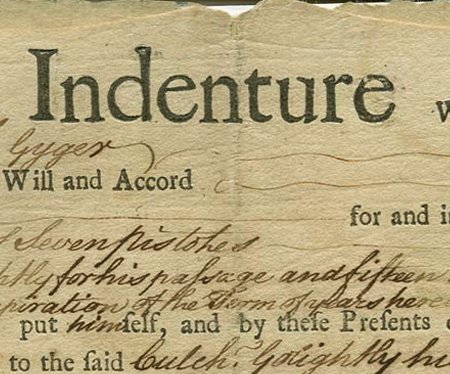 Indenture w
Gyger
Will and Accord
for and i
Seven pistoles
htly for his passage and fifteen
piration of the Term of years here
put himself, and by theſe Preſents
to the ſaid Culch. Golightly hi